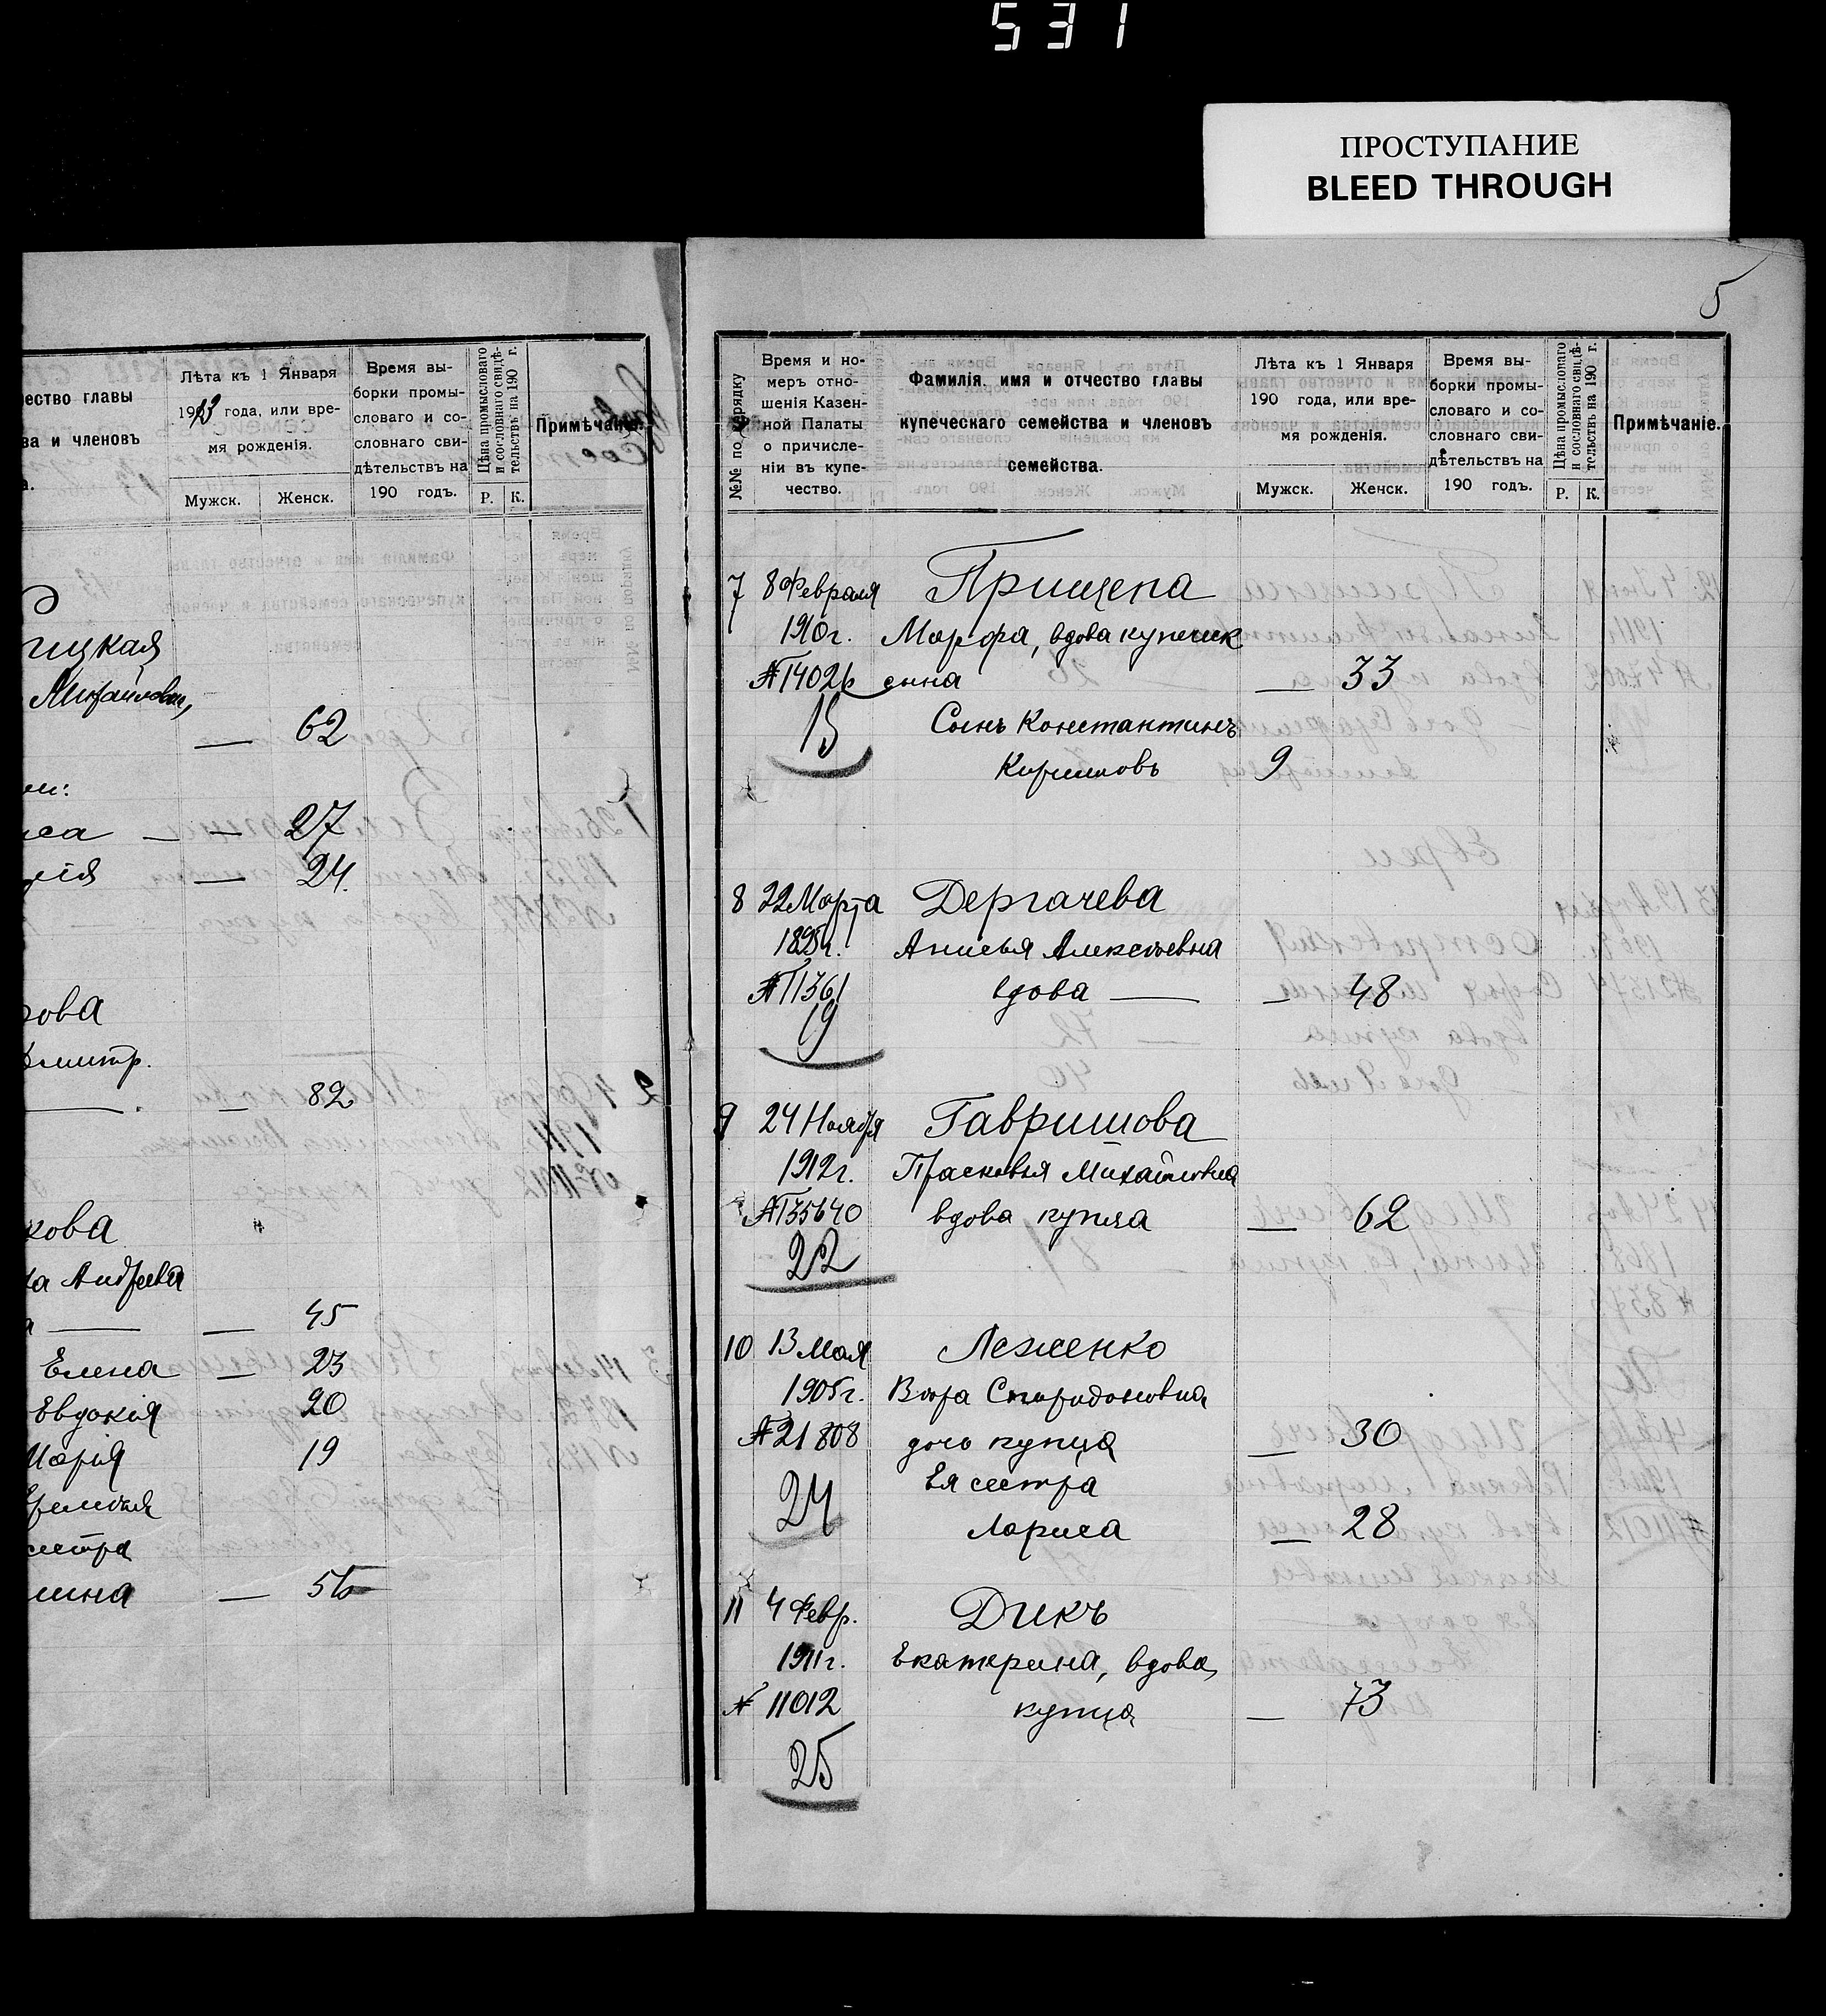 531
ПРОСТУПАНИЕ
BLEED THROUGH
5
ество главы
ва и членовъ
а.
Лѣта къ 1 Января
1913 года, или вре-
мя рожденія.
Мужск. Женск.
Время вы-
борки промы-
словаго и со-
словнаго сви-
дѣтельствъ на
190 годъ.
Цѣна промысловаго
и сословнаго свидѣ-
тельствъ на 190 г.
Р. К.
Примѣчаніе.
ицкая
Михайловна,
— 62
са — — 27
лія — 24.
рова
Дмитр.
— 82
кова
на Андреевна
— 45
Елена — 23
Евдокія 20
Марія 19
сестра
— 56
№№ по порядку
Время и но-
меръ отно-
шенія Казен-
ной Палаты
о причисле-
ніи въ купе-
чество.
Фамилія, имя и отчество главы
купеческаго семейства и членовъ
семейства.
Лѣта къ 1 Января
190 года, или вре-
мя рожденія.
Мужск. Женск.
Время вы-
борки промы-
словаго и со-
словнаго сви-
дѣтельствъ на
190 годъ.
Цѣна промысловаго
и сословнаго свидѣ-
тельствъ на 190 г.
Р. К.
Примѣчаніе.
7 8 Февраля Прищепа
1910г. Марфа, вдова купеческ
№14026 сына — 33
15 Сынъ Константинъ
Кирилловъ 9
8 22 Марта Дергачева
1895г. Анисья Алексѣевна
№11361 вдова — — 48
19
9 24 Ноября Гавришова
1912г. Прасковья Михайловна
№135640 вдова купца — 62
22
10 13 Мая Леженко
1905г. Вѣра Спиридоновна
№21808 дочь купца — 30
Ея сестра
24 Лариса — 28
11 4 Февр. Дикъ
1911г. Екатерина, вдова
№ 11012 купца — 73
25